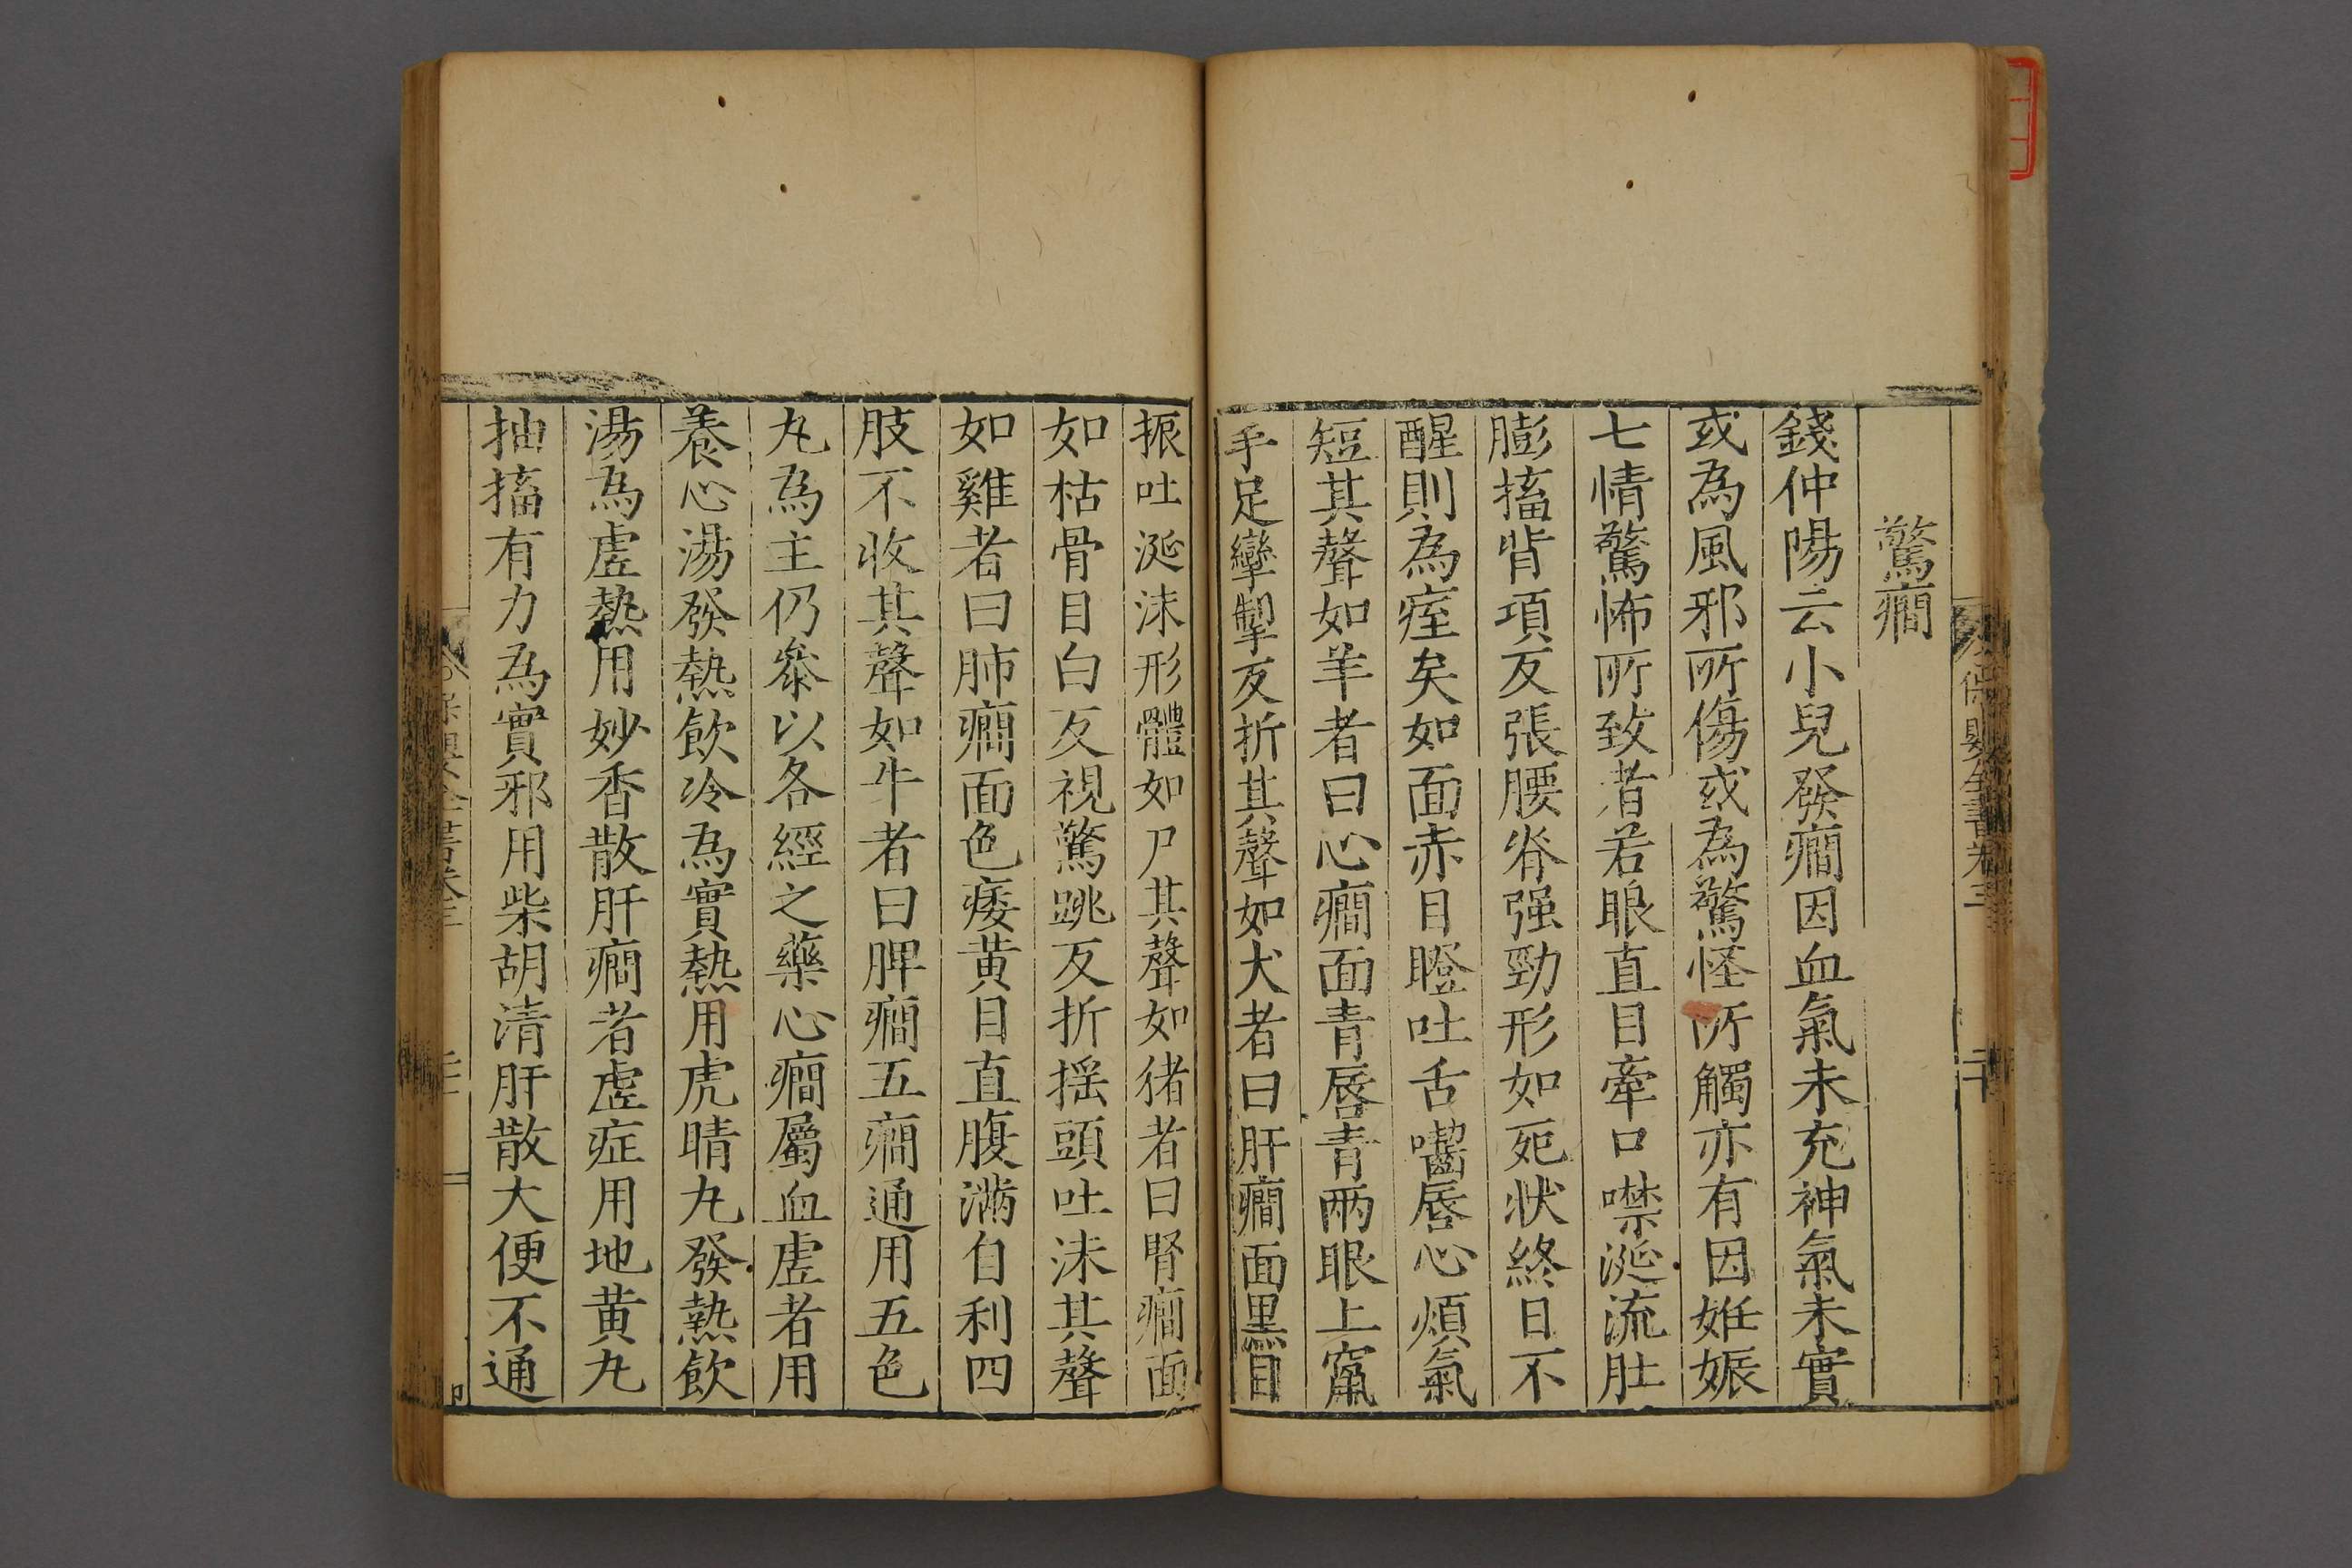 驚癇
錢仲陽云小兒發癇因血氣未充神氣未實
或為風邪所傷或為驚怪所觸亦有因姙娠
七情驚怖所致者若眼直目牽口噤涎流肚
膨搐背項反張腰脊强勁形如死狀終日不
醒則為痓矣如面赤目瞪吐舌嚙唇心煩氣
短其聲如羊者曰心癇面青唇青兩眼上竄
手足攣掣反折其聲如犬者曰肝癇面黑目
振吐涎沫形體如尸其聲如猪者曰腎癇面
如枯骨目白反視驚跳反折揺頭吐沫其聲
如雞者曰肺癇面色痿黄目直腹滿自利四
肢不收其聲如牛者曰脾癇五癇通用五色
丸為主仍叅以各經之藥心癇屬血虛者用
養心湯發熱飲冷為實熱用虎睛丸發熱飲
湯為虛熱用妙香散肝癇者虛症用地黄丸
抽搐有力為實邪用柴胡清肝散大便不通